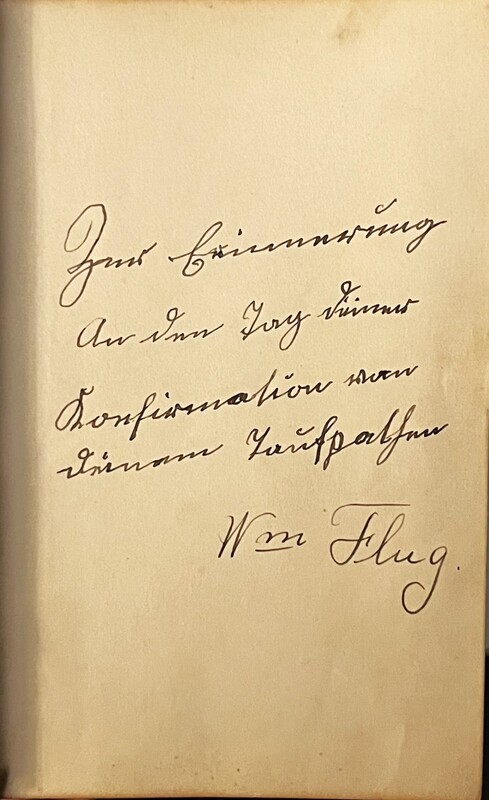 Zur Erinnerung
An den Tag deiner
Konfirmation von
deinem Taufpathen
Wm Flug.